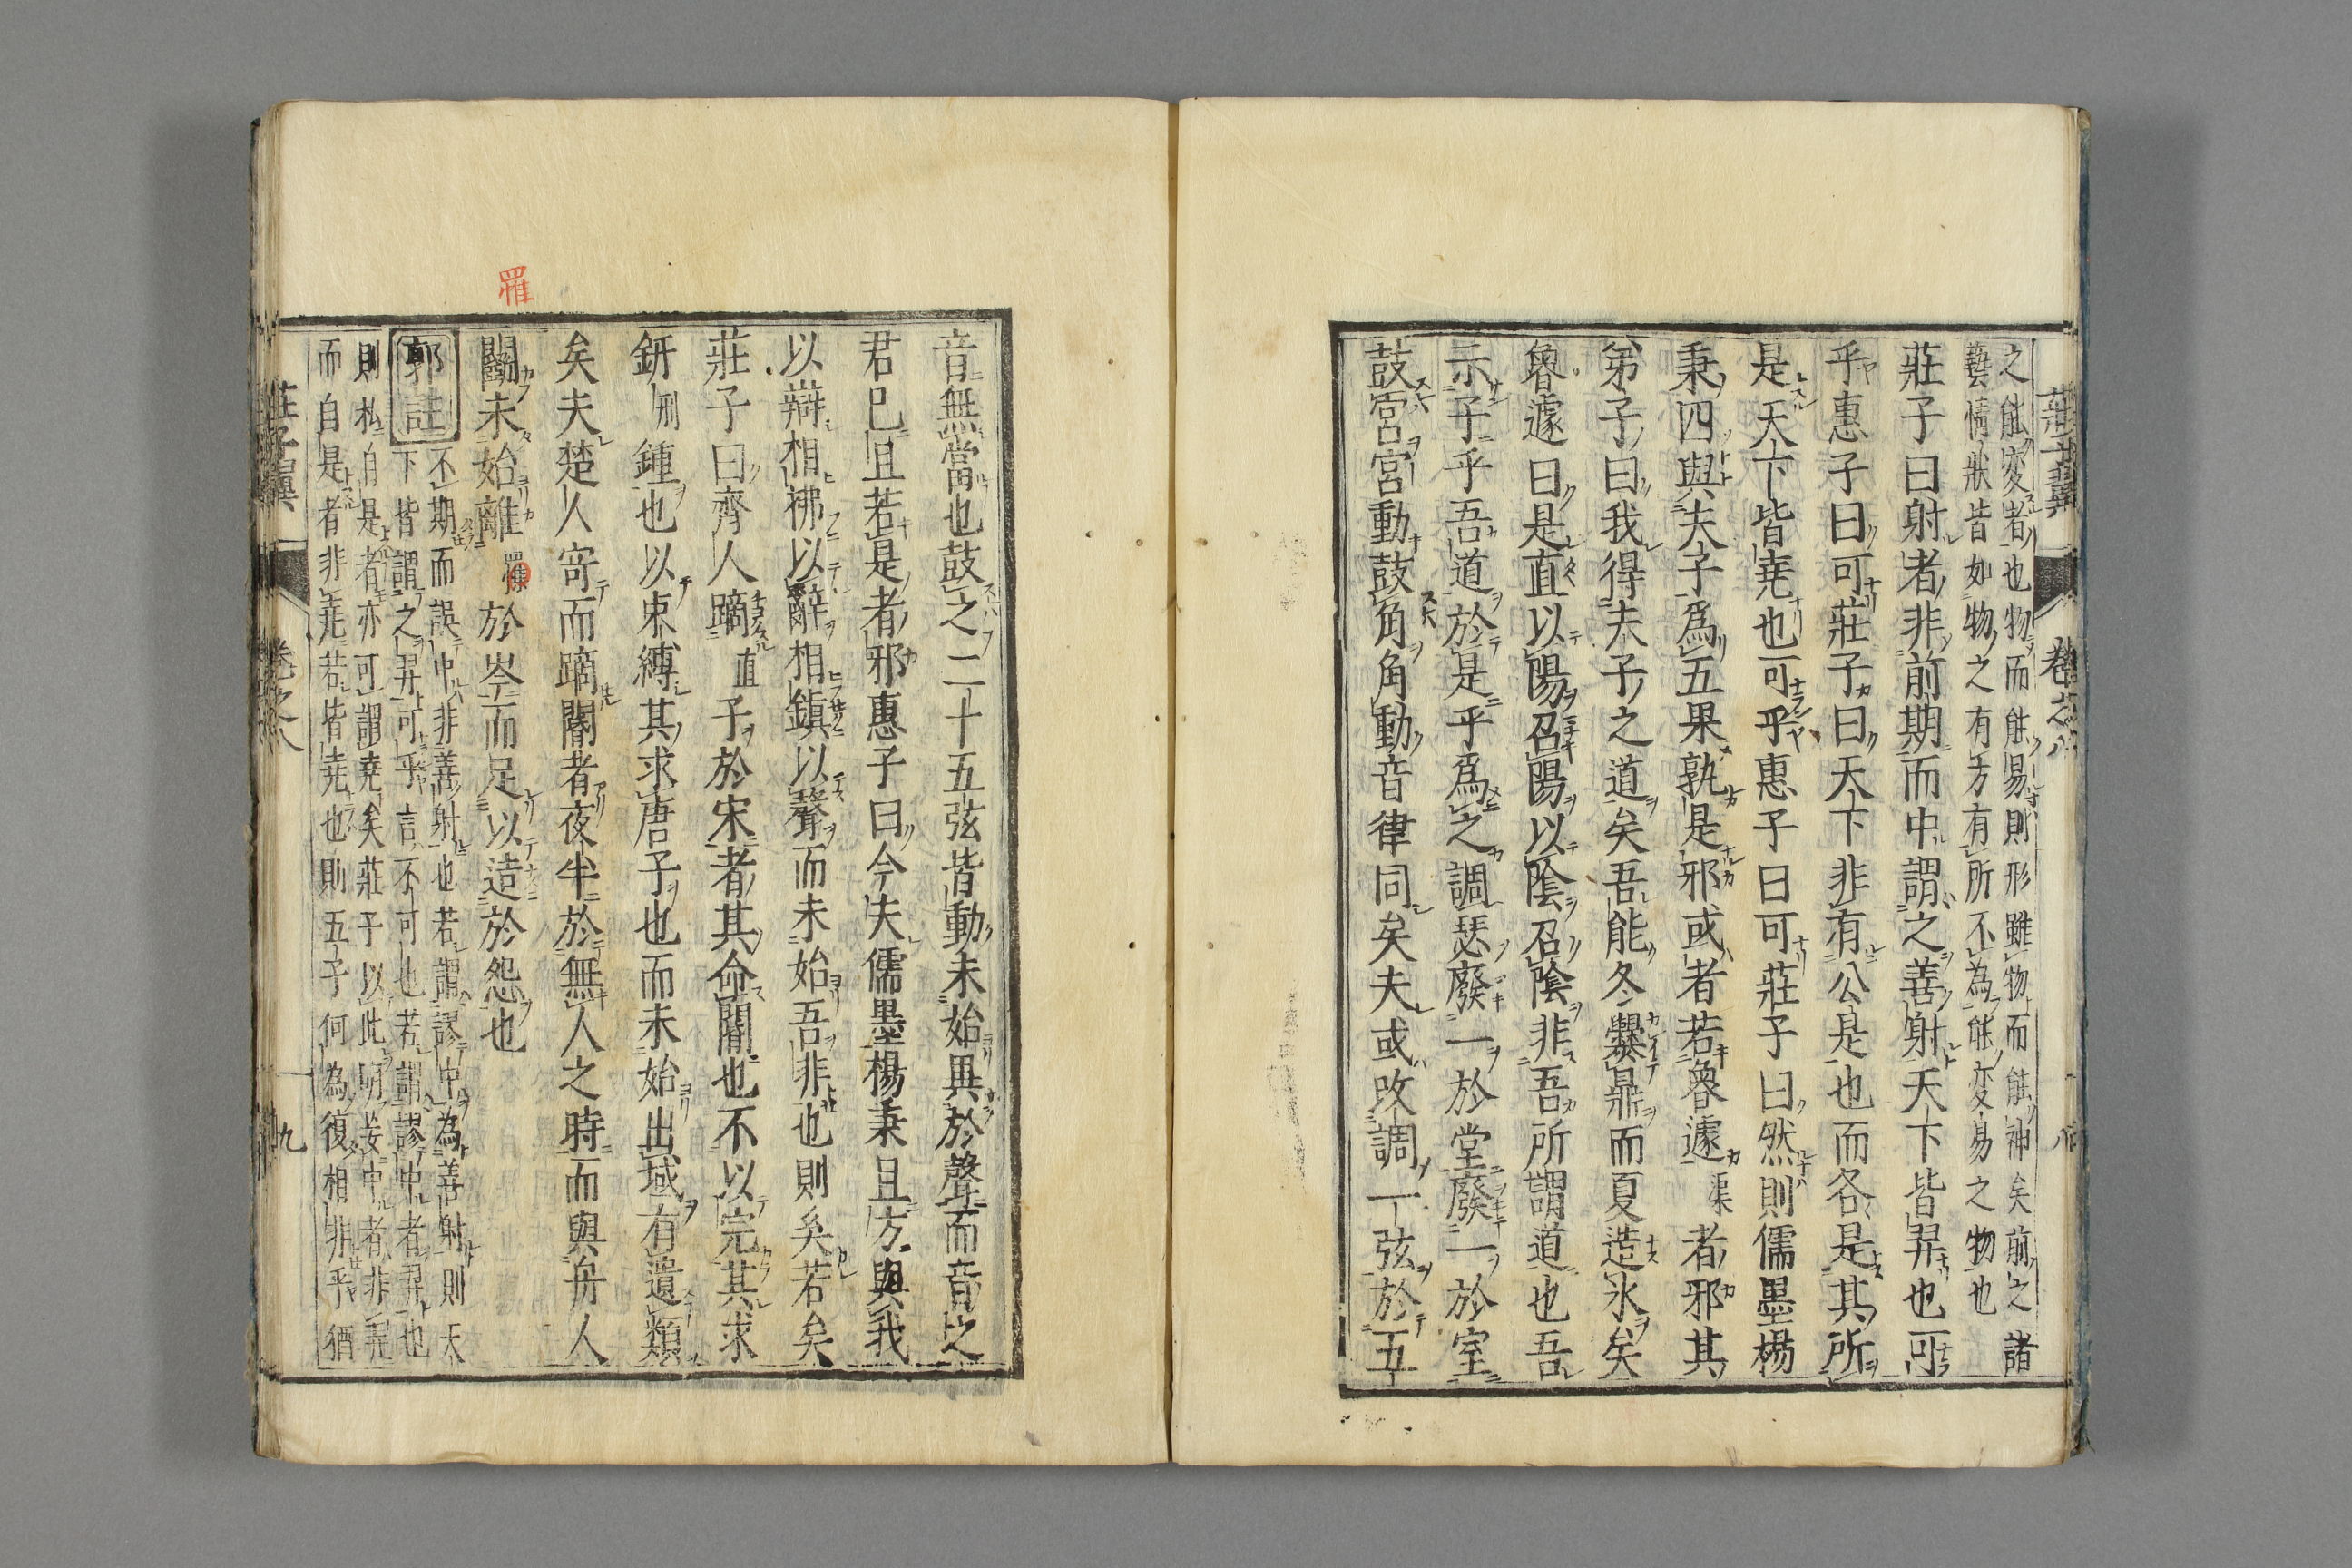 莊子翼 卷之八 八
之能變者也物而能易則形雖物而能神矣前之諸
藝情狀皆如物之有方有所不為能変易之物也
莊子曰射者非前期而中謂之善射天下皆羿也可
乎惠子曰可莊子曰天下非有公是也而各是其所
是天下皆堯也可乎惠子曰可莊子曰然則儒墨楊
秉四與夫子爲五果孰是邪或者若魯遽渠者邪其
弟子曰我得夫子之道矣吾能冬爨鼎而夏造氷矣
魯遽曰是直以陽召陽以陰召陰非吾所謂道也吾
示子乎吾道於是乎爲之調瑟廢一於堂廢一於室
鼓宮宮動鼓角角動音律同矣夫或改調一弦於五
音無當也鼓之二十五弦皆動未始異於聲而音之
君已且若是者邪惠子曰今夫儒墨楊秉且方與我
以辯相拂以辭相鎮以聲而未始吾非也則奚若矣
莊子曰齊人蹢直子於宋者其命閽也不以完其求
鈃刑鍾也以束縛其求唐子也而未始出域有遺類
矣夫楚人寄而蹢閽者夜半於無人之時而與舟人
鬬未始離於岑而足以造於怨也
罹
郭註 不期而誤中非善射也若謂謬中為善射則天
下皆謂之羿可乎言不可也若謂謬中者羿也
則私自是者亦可謂堯矣莊子以此明妄中者非羿
而自是者非堯若皆堯也則五子何為復相非乎猶
莊子翼 卷之八 九